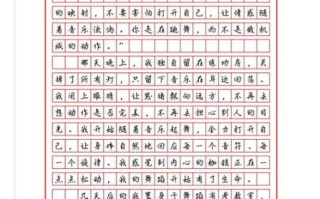 的映射，不要害怕打开自己，让情感随
着音乐流淌。你是在跳舞，而不是做机
械的动作。”
那天晚上，我独自留在练功房，关
掉了所有灯，只留下音乐在耳边回荡。
我闭上眼睛，让思绪飘向远方，不再去
想动作是否完美，不再去担心别人的目
光。我开始随着音乐起舞，全力打开自
己，让身体自然地回应每一个音符、每
一个旋律。我感觉到内心的枷锁正在一
点点松动，我的舞蹈开始有了生命。
几天后的我置身于舞蹈演考教室，